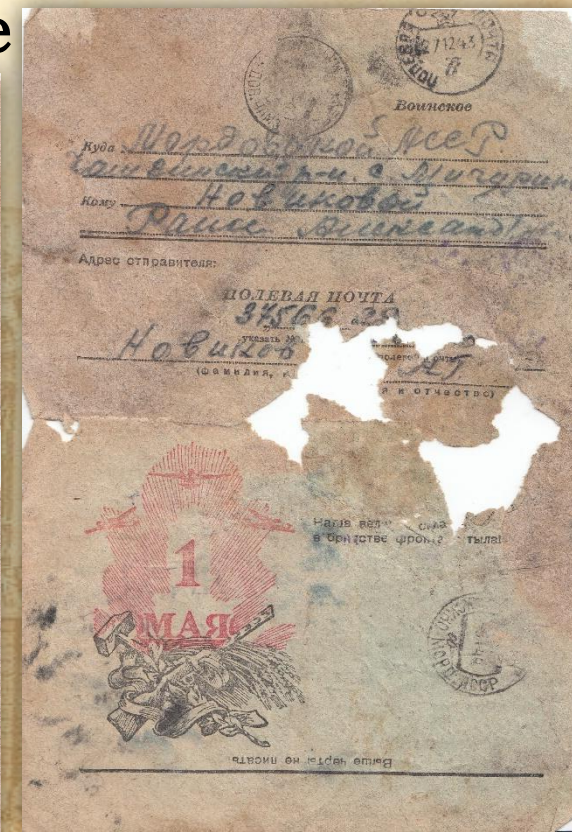 е
ПОЛЕВАЯ ПОЧТА
27 12 43
Воинское
Куда Мордовской АССР
р-н. с. Мичурин
Кому Новиковой
Раисе Александр
Адрес отправителя:
ПОЛЕВАЯ ПОЧТА
37566
указать №
Новиков АГ
(фамилия, и я и отчество)
Наша вел сила
в братстве фронта тыла!
1
МАЯ
МОРД. АССР
Выше черты не писать